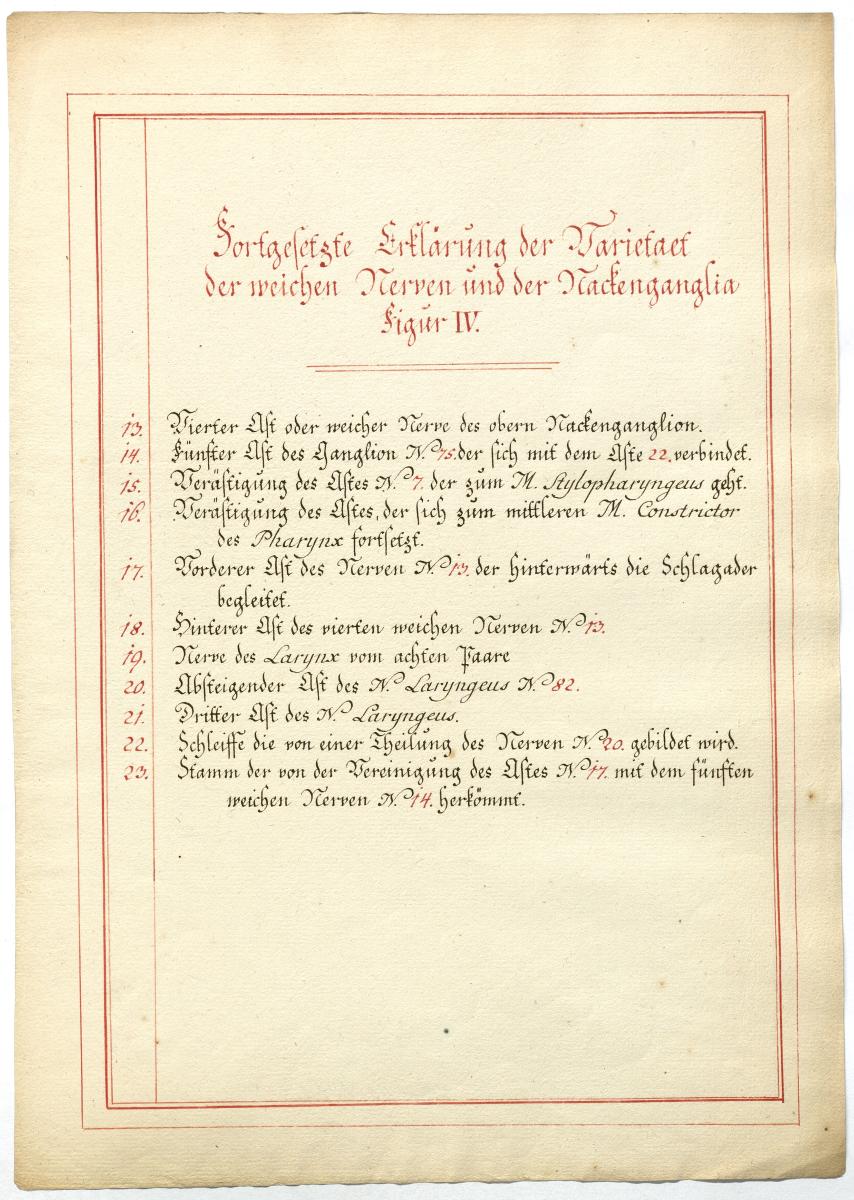 Fortgesetzte Erklärung der Varietaet
der weichen Nerven und der Nackenganglia
Figur IV.
13. Vierter Ast oder weicher Nerve des obern Nackenganglion.
14. Fünfter Ast des Ganglion N.º 75. der sich mit dem Aste 22. verbindet.
15. Verästigung des Astes N.º 7. der zum M. Stylopharyngeus geht.
16. Verästigung des Astes, der sich zum mittleren M. Constrictor
des Pharynx fortsetzt.
17. Vorderer Ast des Nerven N.º 13. der hinterwärts die Schlagader
begleitet.
18. Hinterer Ast des vierten weichen Nerven N.º 13.
19. Nerve des Larynx vom achten Paare
20. Absteigender Ast des N.º Laryngeus N.º 82.
21. Dritter Ast des N.º Laryngeus.
22. Schleiffe die von einer Theilung des Nerven N.º 20. gebildet wird.
23. Stamm der von der Vereinigung des Astes N.º 17. mit dem fünften
weichen Nerven N.º 14. herkömmt.